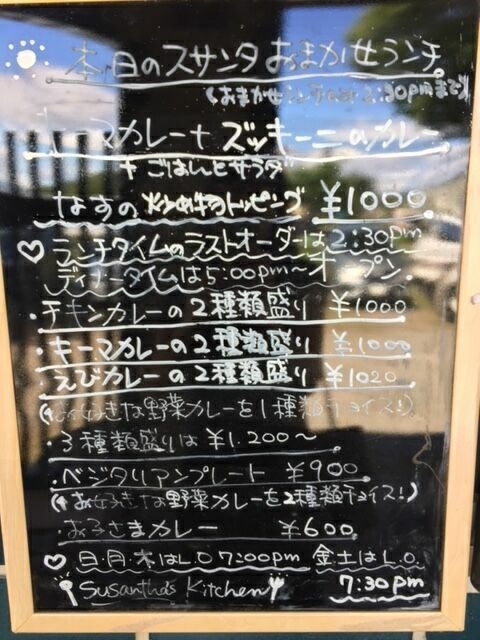 本日のスサンタおまかせランチ
(おまかせランチは2:30PMまで)
キーマカレー+ズッキーニのカレー
+ごはんとサラダ
なすの炒め物トッピング ¥1000
♡ランチタイムのラストオーダーは2:30pm
ディナータイムは5:00pm〜オープン
・チキンカレーの2種類盛り ¥1000
・キーマカレーの2種類盛り ¥1000
・えびカレーの2種類盛り ¥1020
(お好きな野菜カレーを1種類チョイス!)
・3種類盛りは¥1.200〜
・ベジタリアンプレート ¥900
(お好きな野菜カレーを2種類チョイス!)
・お子さまカレー ¥600
♡日・月・木はL.O 7:00pm 金・土はL.O.
Susantha's Kitchen 7:30pm